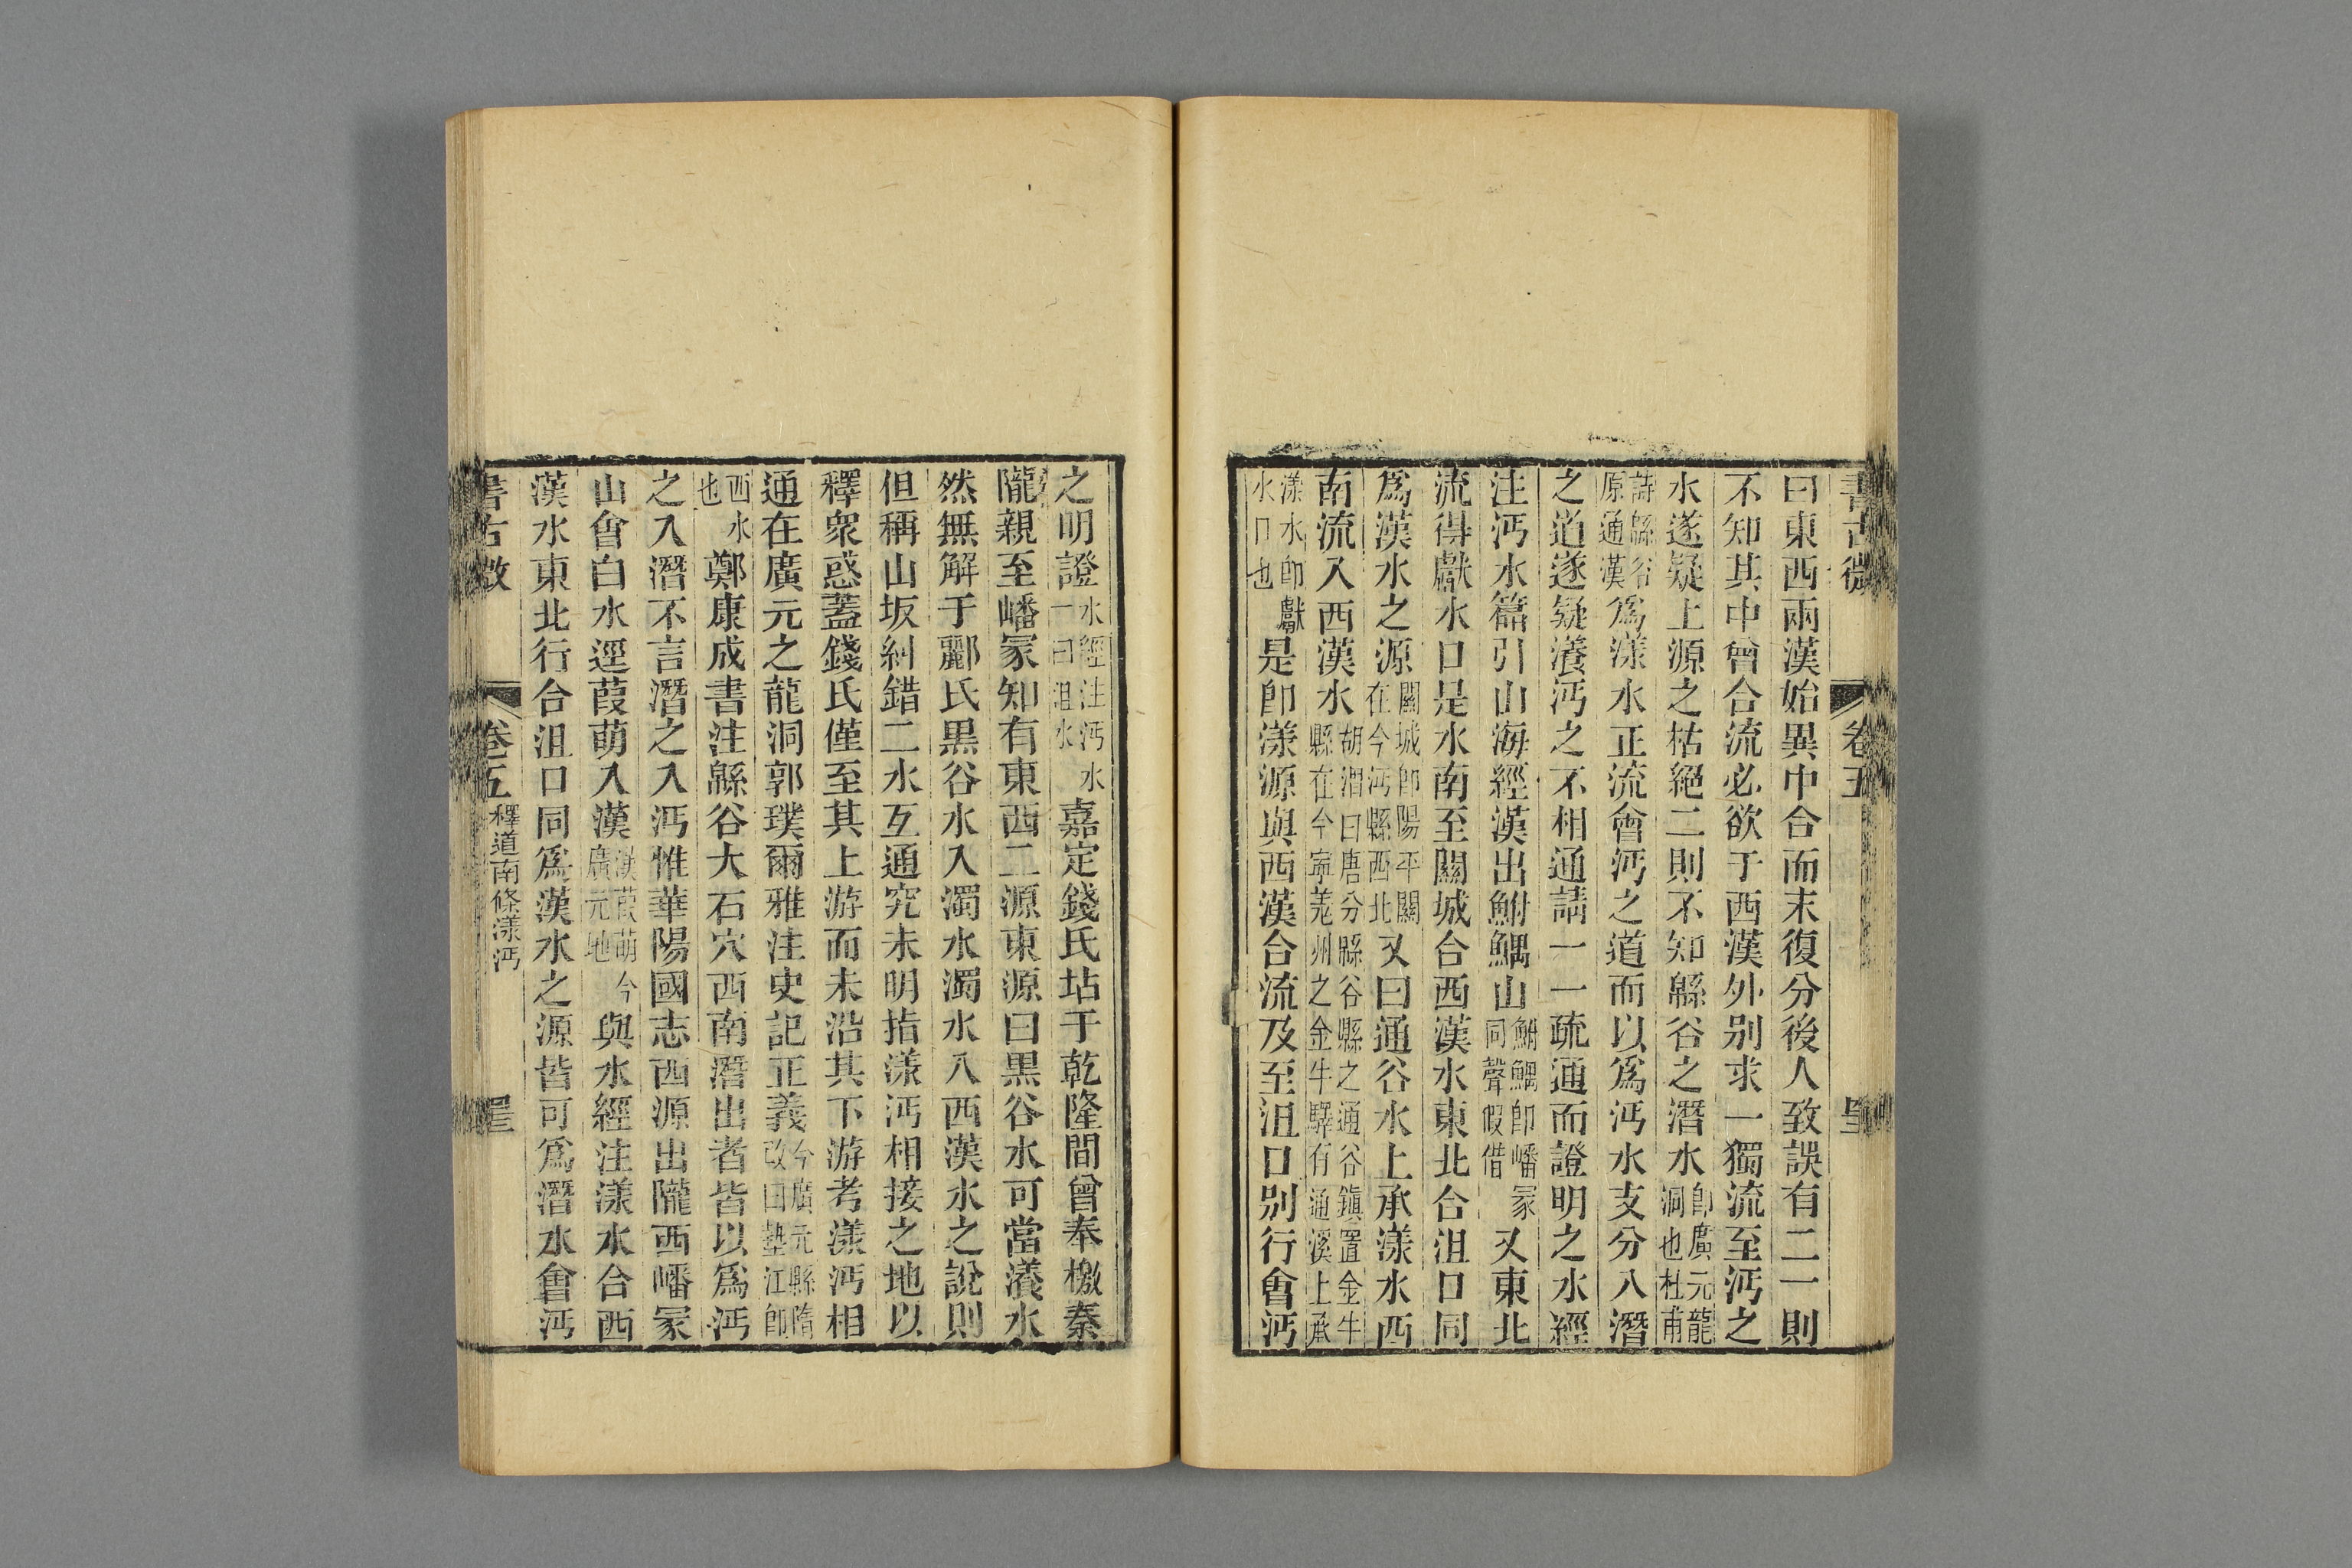 書古微 卷五
曰東西兩漢始異中合而末復分後人致誤有二一則
不知其中曾合流必欲于西漢外別求一獨流至沔之
水遂疑上源之枯絕二則不知緜谷之潛水卽廣元龍洞也杜甫
詩緜谷原通漢爲漾水正流會沔之道而以爲沔水支分入潛
之道遂疑瀁沔之不相通請一一疏通而證明之水經
注沔水篇引山海經漢出鮒鰅山鮒鰅卽嶓冢同聲假借又東北
流得獻水口是水南至關城合西漢水東北合沮口同
爲漢水之源關城卽陽平關在今沔縣西北又曰通谷水上承漾水西
南流入西漢水胡渭曰唐分緜谷縣之通谷鎭置金牛縣在今寧羌州之金牛驛有通溪上承
漾水卽獻水口也是卽漾源與西漢合流及至沮口別行會沔
之明證水經注沔水一曰沮水嘉定錢氏坫于乾隆間曾奉檄秦
隴親至嶓冢知有東西二源東源曰黑谷水可當瀁水
然無解于酈氏黑谷水入濁水濁水入西漢水之說則
但稱山坂糾錯二水互通究未明指漾沔相接之地以
釋衆惑蓋錢氏僅至其上游而未沿其下游考漾沔相
通在廣元之龍洞郭璞爾雅注史記正義今廣元縣隋改曰墊江卽
西水也鄭康成書注緜谷大石穴西南潛出者皆以爲沔
之入潛不言潛之入沔惟華陽國志西源出隴西嶓冢
山會白水逕葭萌入漢漢葭萌今廣元地與水經注漾水合西
漢水東北行合沮口同爲漢水之源皆可爲潛水會沔
書古微 卷五 釋道南條漾沔